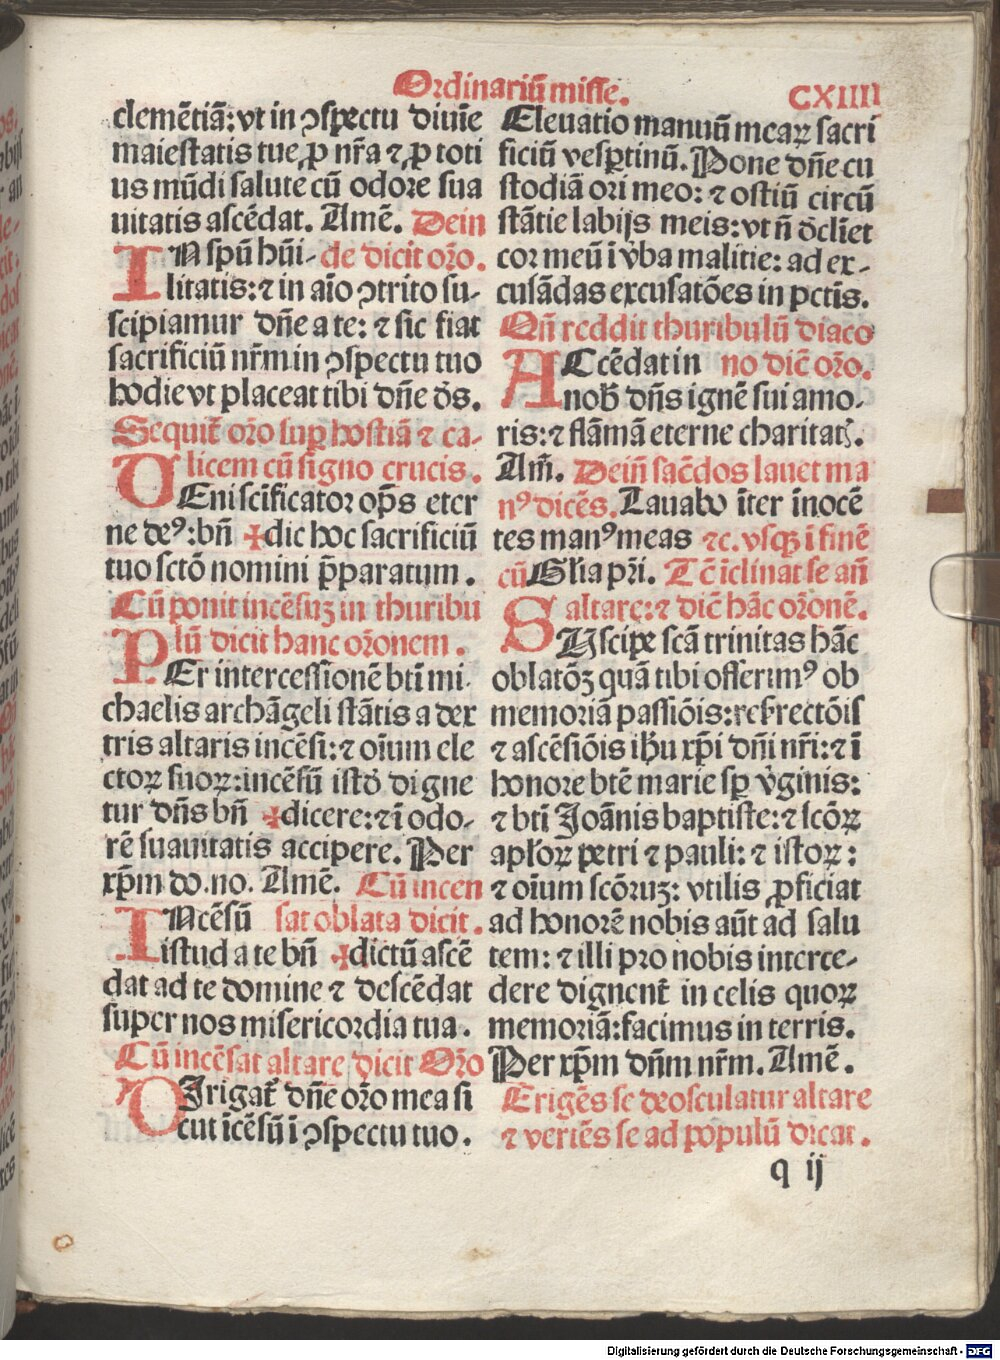 Ordinariū misse.
CXIIII
clemētiā: vt in ꝯspectu diuīe
maiestatis tue, ꝓ nr̄a ⁊ ꝓ toti
us mūdi salute cū odore sua
uitatis ascēdat. Amē. Dein
IN spū hūi- de dicit oro̅.
litatis: ⁊ in aīo ꝯtrito su-
scipiamur dn̄e a te: ⁊ sic fiat
sacrificiū nr̄m in ꝯspectu tuo
hodie vt placeat tibi dn̄e ds̄.
Sequit᷑ oro̅ suꝑ hostiā ⁊ ca-
licem cū signo crucis.
VEni scīficator op̄s eter
ne deꝰ: bn̄ ✠dic hoc sacrificiū
tuo sctō nomini p̄paratum.
Cū ponit incēsuꝫ in thuribu
lū dicit hanc oro̅nem.
PEr intercessionē bti̅ mi-
chaelis archāgeli stātis a dex
tris altaris incēsi: ⁊ oīum ele
ctoꝝ suoꝝ: incēsū istō digne
tur dn̄s bn̄ ✠dicere: ⁊ ī odo-
rē suauitatis accipere. Per
xp̄m do. no. Amē. Cū incen
INcēsū sat oblata dicit.
istud a te bn̄ ✠dictū ascē
dat ad te domine ⁊ descēdat
super nos misericordia tua.
Cū incēsat altare dicit Oro̅
DIrigat᷑ dn̄e oro̅ mea si
cut īcēsū ī ꝯspectu tuo.
Eleuatio manuū meaꝝ sacri
ficiū vesꝑtinū. Pone dn̄e cu
stodiā ori meo: ⁊ ostiū circū
stātie labijs meis: vt n̄ dc̄līet
cor meū ī v̄ba malitie: ad ex-
cusādas excusatōes in pctīs.
Qn̄ reddit thuribulū diaco
ACcēdat in no dic̄ oro̅.
nob̄ dn̄s ignē sui amo-
ris: ⁊ flāmā eterne charitatꝭ.
Am̄. Dein̄ sac̄dos lauet ma
nꝰ dicēs. Lauabo īter īnocē
tes manꝰ meas ⁊c. vsqꝫ ī finē
cū Gl̄ia pr̄i. Tc̄ īclinat se an̄
altare: ⁊ dic̄ hāc oro̅nē.
SUscipe scā trinitas hāc
oblatōꝫ quā tibi offerimꝰ ob
memoriā passiōis: resrectōis
⁊ ascēsiōis ihu̅ xp̄i dn̄i nr̄i: ⁊ ī
honore btē marie sꝑ v̄ginis:
⁊ bti̅ Joānis baptiste: ⁊ scōꝝ
apl̄oꝝ petri ⁊ pauli: ⁊ istoꝝ:
⁊ oīum scōruꝫ: vtilis ꝓficiat
ad honorē nobis aūt ad salu
tem: ⁊ illi pro nobis interce-
dere dignent᷑ in celis quoꝝ
memoriā: facimus in terris.
Per xp̄m dn̄m nr̄m. Amē.
Erigēs se deosculatur altare
⁊ vertēs se ad populū dicat.
q ij
Digitalisierung gefördert durch die Deutsche Forschungsgemeinschaft - DFG